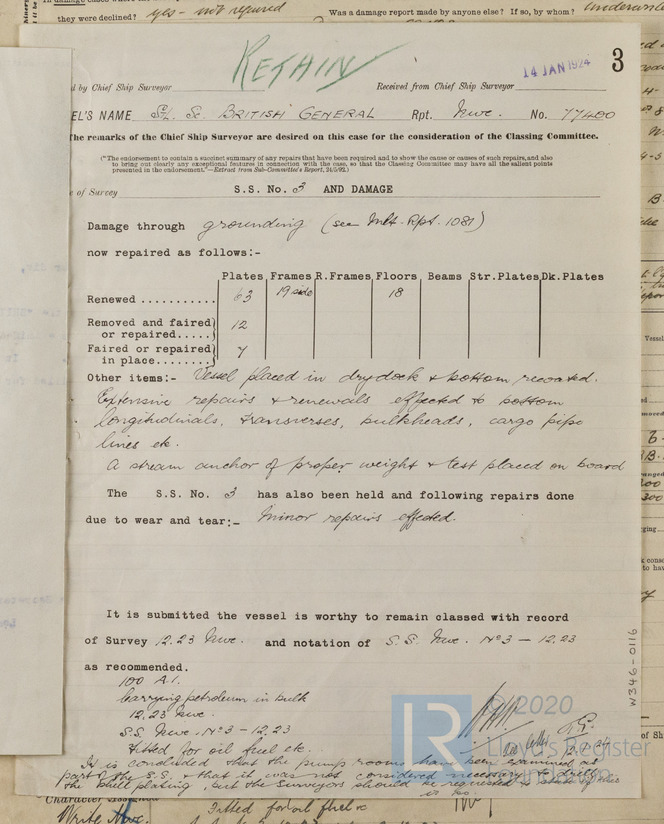 they were declined? yes - not repaired Was a damage report made by anyone else? If so, by whom?
RETAIN
14 JAN 1924
3
d by Chief Ship Surveyor Received from Chief Ship Surveyor
EL'S NAME St. Sc. BRITISH GENERAL Rpt. Nwc. No. 77400
The remarks of the Chief Ship Surveyor are desired on this case for the consideration of the Classing Committee.
("The endorsement to contain a succinct summary of any repairs that have been required and to show the cause or causes of such repairs, and also
to bring out clearly any exceptional features in connection with the case, so that the Classing Committee may have all the salient points
presented in the endorsement."—Extract from Sub-Committee's Report, 24/5/92.)
e of Survey S.S. No. 3 AND DAMAGE
Damage through grounding (see Mlt. Rpt. 1081)
now repaired as follows:-
Plates Frames R.Frames Floors Beams Str.Plates Dk.Plates
Renewed ........... 63 19 side 18
Removed and faired
or repaired..... 12
Faired or repaired
in place........ 7
Other items:- Vessel placed in drydock & bottom recoated.
Extensive repairs & renewals effected to bottom
longitudinals, transverses, bulkheads, cargo pipe
lines etc.
A stream anchor of proper weight & test placed on board
The S.S. No. 3 has also been held and following repairs done
due to wear and tear:- Minor repairs effected.
It is submitted the vessel is worthy to remain classed with record
of Survey 12.23 Nwc. and notation of S.S. Nwc. No 3 - 12.23
as recommended.
100 A.1.
Carrying petroleum in bulk
12.23 Nwc.
S.S. Nwc. No 3 - 12.23
Fitted for oil fuel etc.
It is concluded that the pump rooms have been examined as
part of the S.S. & that it was not considered necessary to drill
the shell plating, but the Surveyors should be requested to state if this
is so.
W346-0116
© 2020
Lloyd's Register
Write Nwc. Fitted for oil fuel